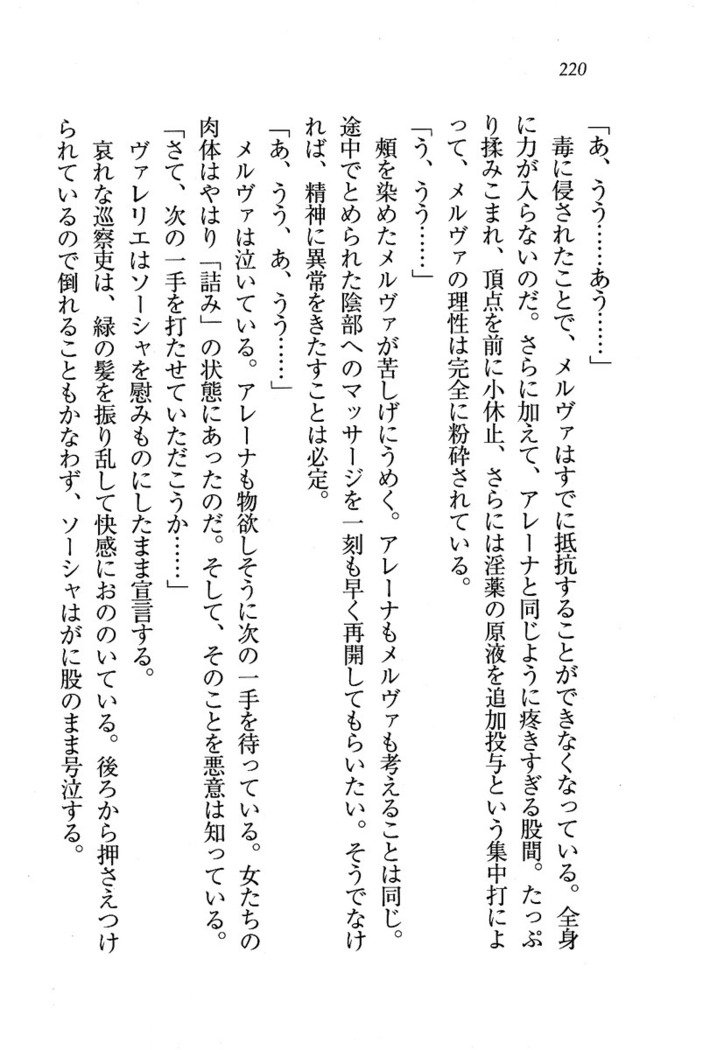 220
「あ、うう……あう……」
　毒に侵されたことで、メルヴァはすでに抵抗することができなくなっている。全身
に力が入らないのだ。さらに加えて、アレーナと同じように疼きすぎる股間。たっぷ
り揉みこまれ、頂点を前に小休止、さらには淫薬の原液を追加投与という集中打によ
って、メルヴァの理性は完全に粉砕されている。
「う、うう……」
　頬を染めたメルヴァが苦しげにうめく。アレーナもメルヴァも考えることは同じ。
途中でとめられた陰部へのマッサージを一刻も早く再開してもらいたい。そうでなけ
れば、精神に異常をきたすことは必定。
「あ、うう、あ、うう……」
　メルヴァは泣いている。アレーナも物欲しそうに次の一手を待っている。女たちの
肉体はやはり「詰み」の状態にあったのだ。そして、そのことを悪意は知っている。
「さて、次の一手を打たせていただこうか……」
　ヴァレリエはソーシャを慰みものにしたまま宣言する。
　哀れな巡察吏は、緑の髪を振り乱して快感におののいている。後ろから押さえつけ
られているので倒れることもかなわず、ソーシャはがに股のまま号泣する。